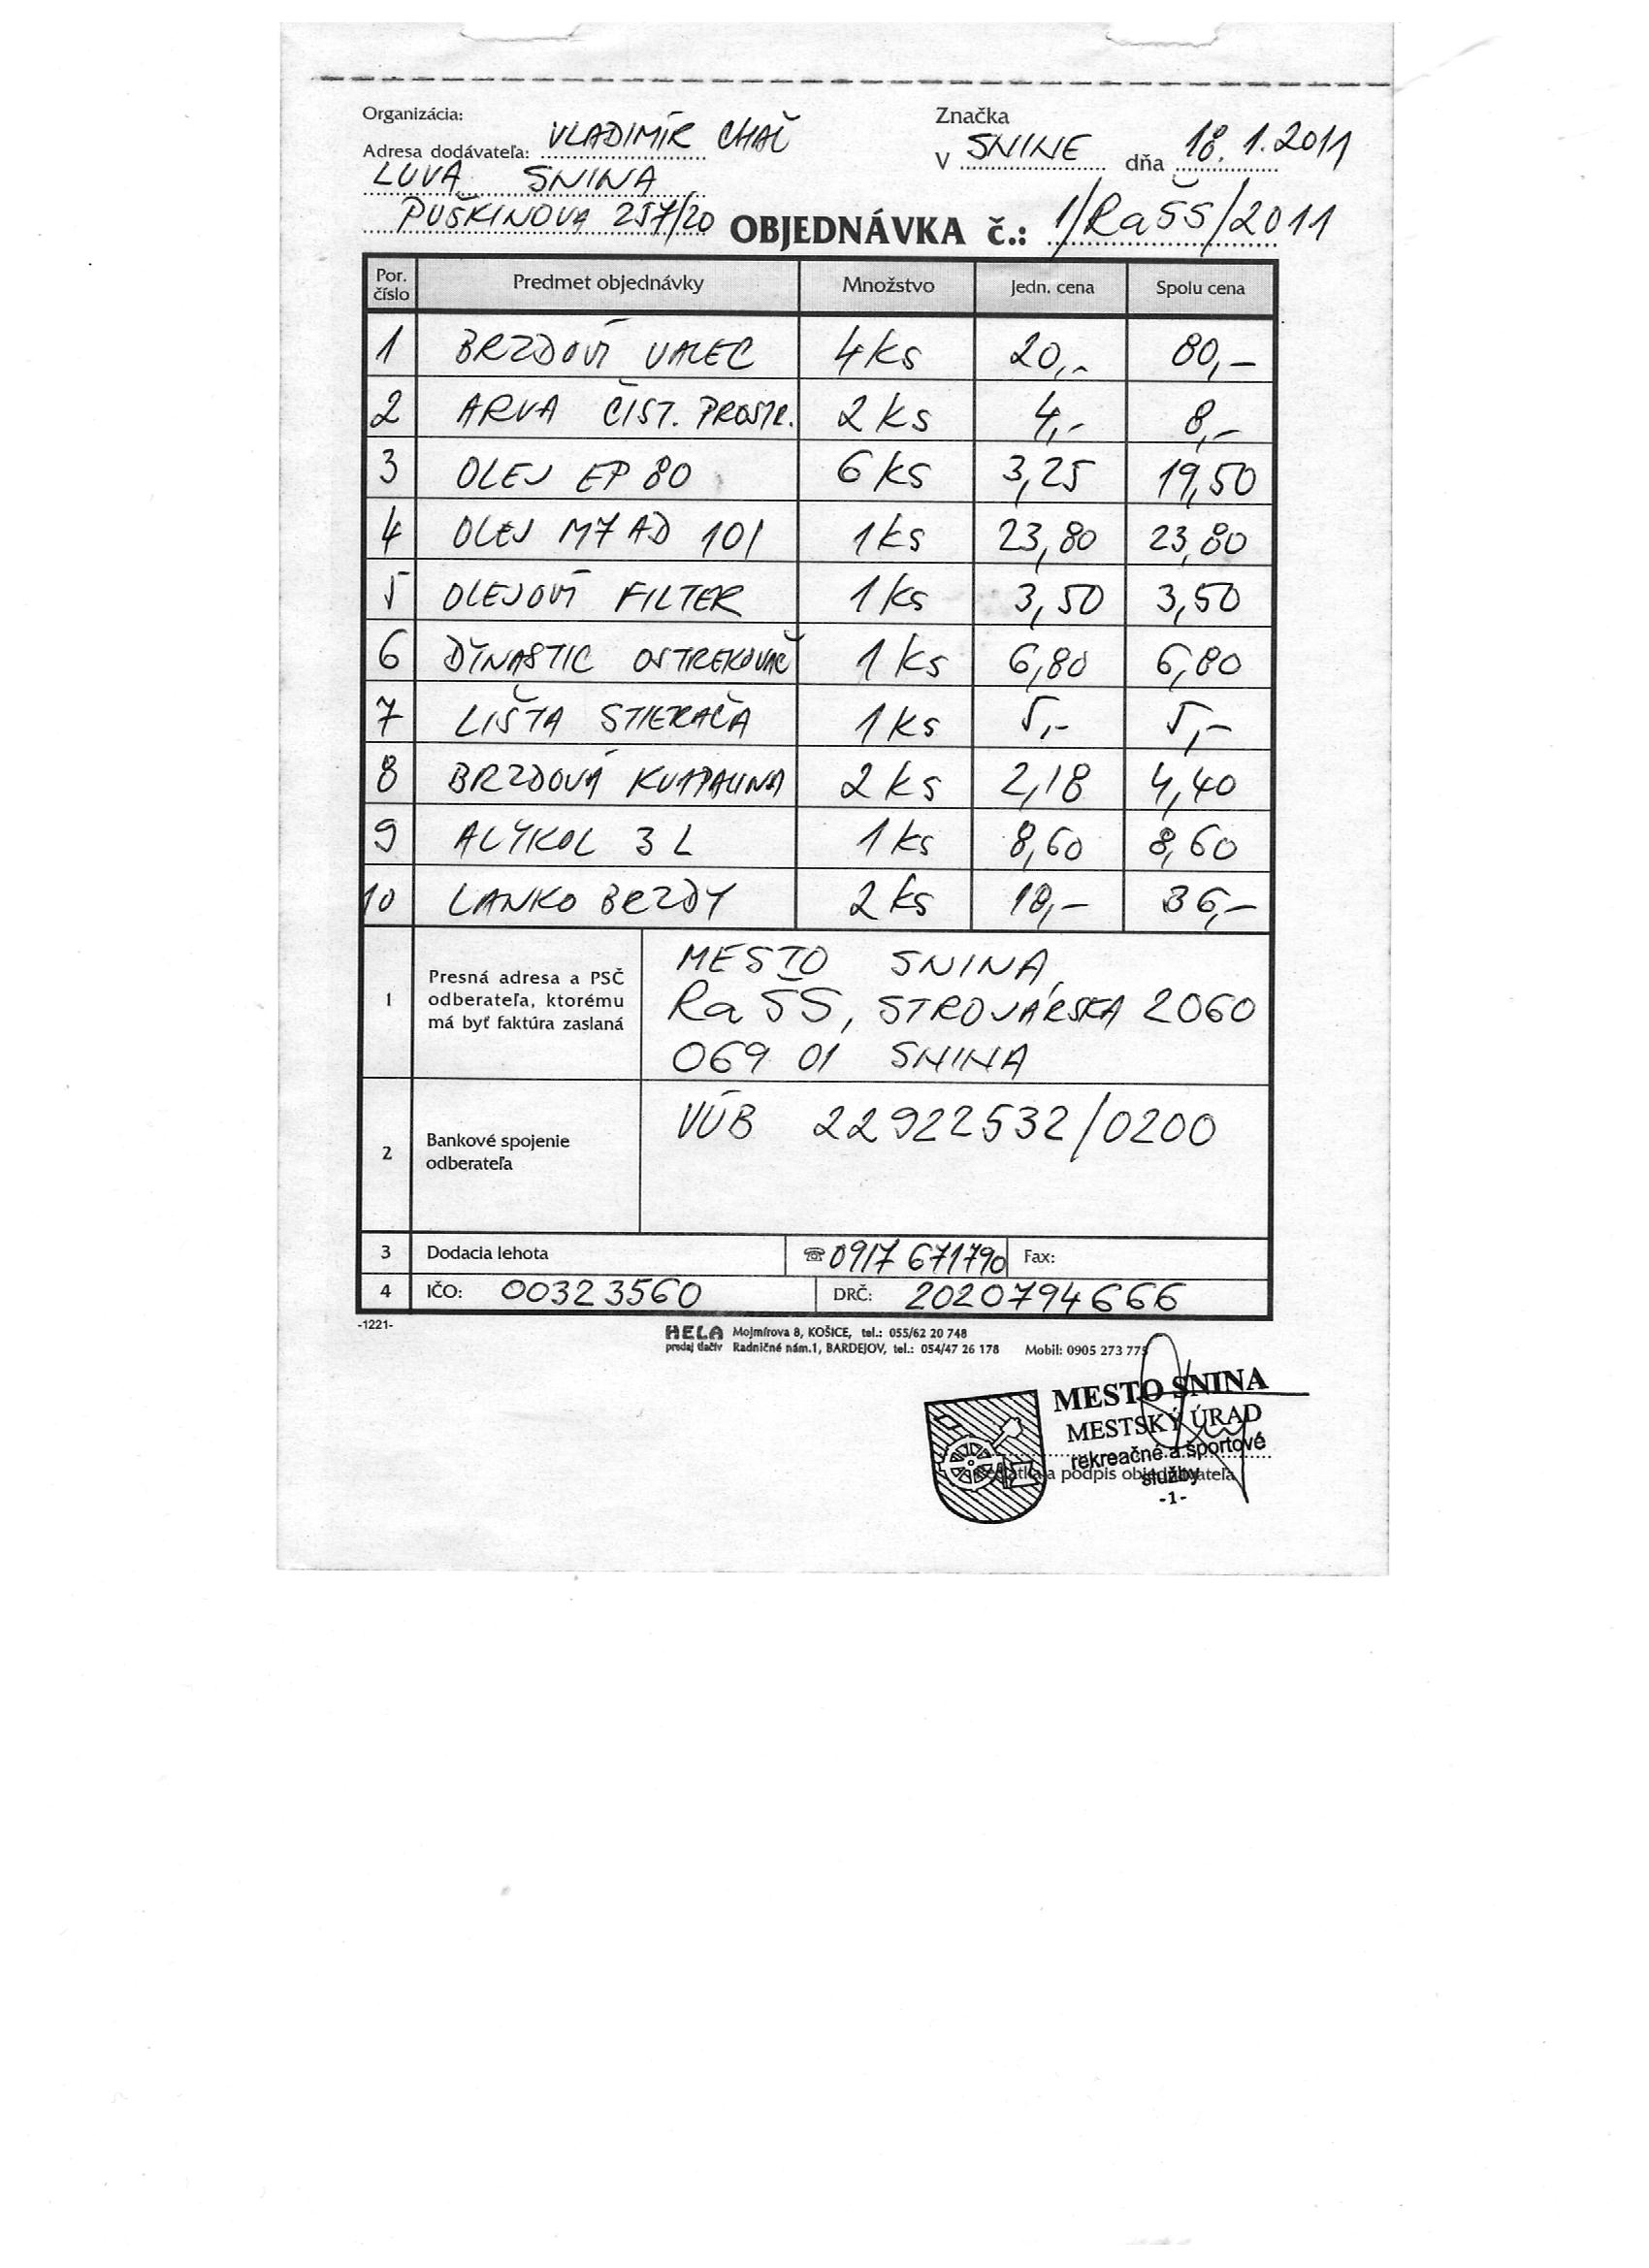 Organizácia:
Adresa dodávateľa: VLADIMÍR CHAČ
LUVA SNINA
PUŠKINOVA 257/20
Značka
V SNINE dňa 18.1.2011
OBJEDNÁVKA č.: 1/RaŠS/2011
Por. číslo Predmet objednávky Množstvo Jedn. cena Spolu cena
1 BRZDOVÍ VALEC 4 ks 20,- 80,-
2 ARVA ČIST. PROSTR. 2 ks 4,- 8,-
3 OLEJ EP 80 6 ks 3,25 19,50
4 OLEJ M7 AD 10l 1 ks 23,80 23,80
5 OLEJOVÍ FILTER 1 ks 3,50 3,50
6 DYNASTIC OSTREKOVAČ 1 ks 6,80 6,80
7 LIŠTA STIERAČA 1 ks 5,- 5,-
8 BRZDOVÁ KVAPALINA 2 ks 2,18 4,40
9 ALYKOL 3 L 1 ks 8,60 8,60
10 LANKO BRZDY 2 ks 18,- 36,-
1 Presná adresa a PSČ
odberateľa, ktorému
má byť faktúra zaslaná
MESTO SNINA,
RaŠS, STROJÁRSKA 2060
069 01 SNINA
2 Bankové spojenie
odberateľa
VÚB 22922532/0200
3 Dodacia lehota ☎ 0917 671790 Fax:
4 IČO: 00323560 DRČ: 2020794666
-1221-
HELA Mojmírova 8, KOŠICE, tel.: 055/62 20 748
predaj tlačív Radničné nám.1, BARDEJOV, tel.: 054/47 26 178 Mobil: 0905 273 775
MESTO SNINA
MESTSKÝ ÚRAD
rekreačné a športové
služby
a podpis objednávateľa
-1-